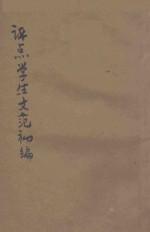 评点学生文范初编